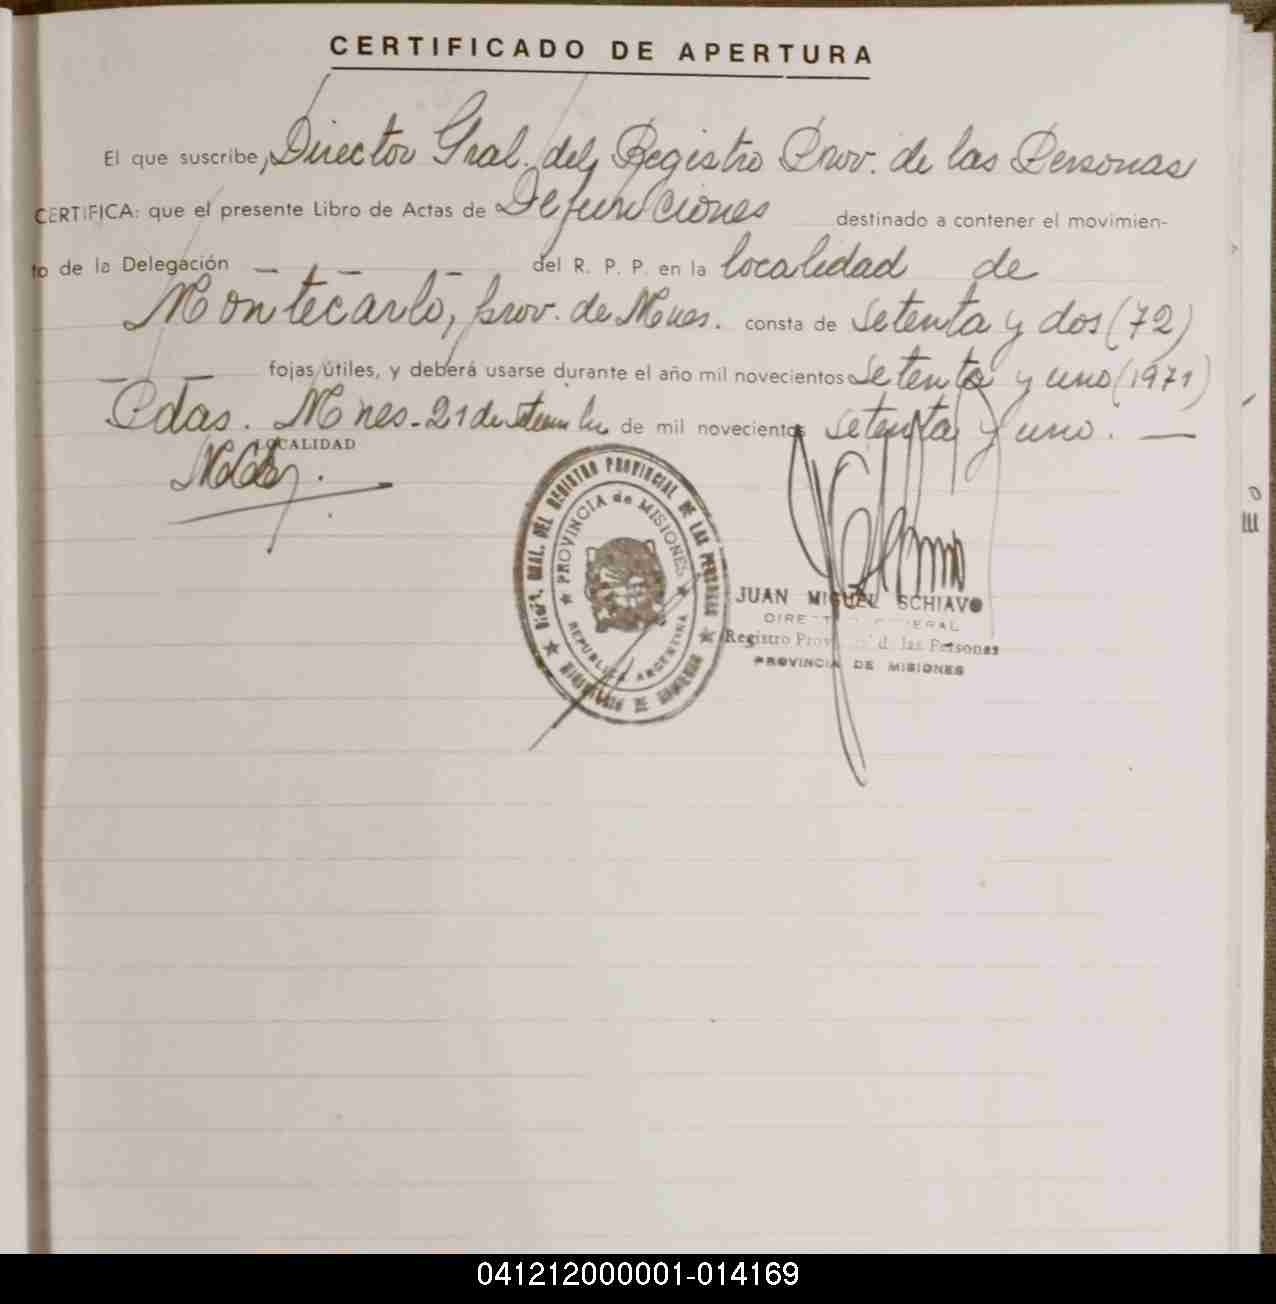 CERTIFICADO DE APERTURA
El que suscribe, Director Gral. del Registro Prov. de las Personas
CERTIFICA: que el presente Libro de Actas de Defunciones destinado a contener el movimien-
to de la Delegación — — — del R. P. P. en la localidad de
Montecarlo, prov. de Mnes. consta de setenta y dos (72)
— — fojas útiles, y deberá usarse durante el año mil novecientos setenta y uno (1971)
Pdas. Mnes. 21 de setiembre de mil novecientos setenta y uno. —
LOCALIDAD
DIR. GRAL. DEL REGISTRO PROVINCIAL DE LAS PERSONAS
PROVINCIA de MISIONES
REPUBLICA ARGENTINA
MINISTERIO DE GOBIERNO
JUAN MIGUEL SCHIAVO
DIRECTOR GENERAL
Registro Provincial de las Personas
PROVINCIA DE MISIONES
041212000001-014169